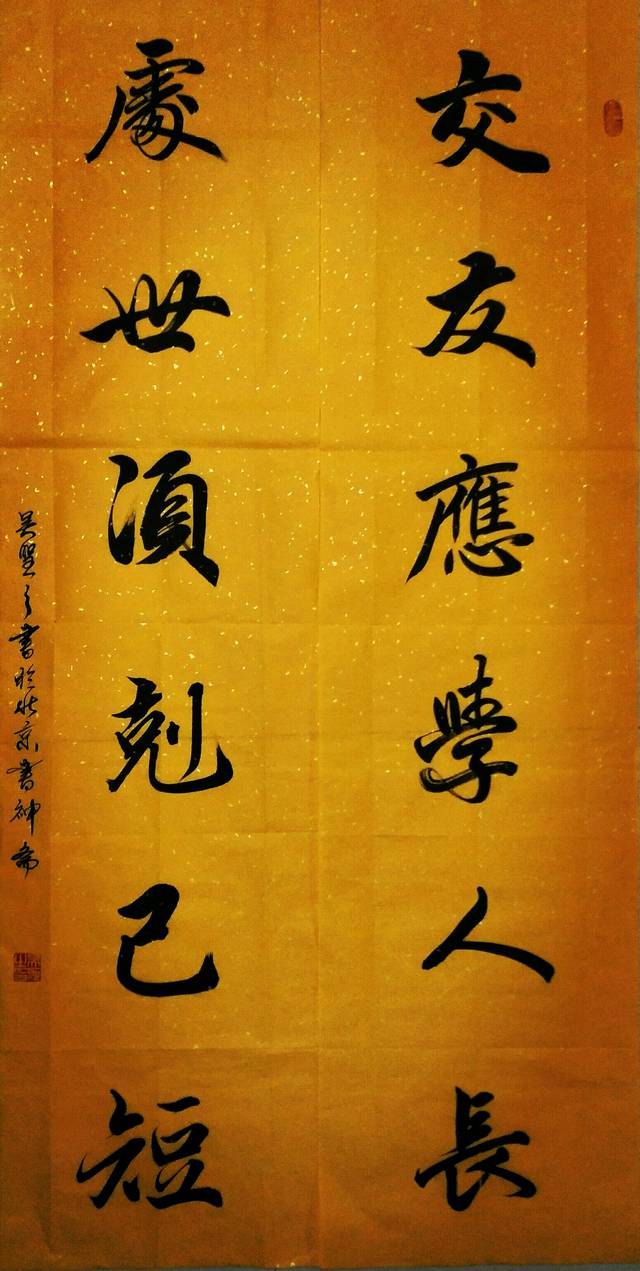 交友應學人長
處世須剋己短
吴聖之書於北京書神斋